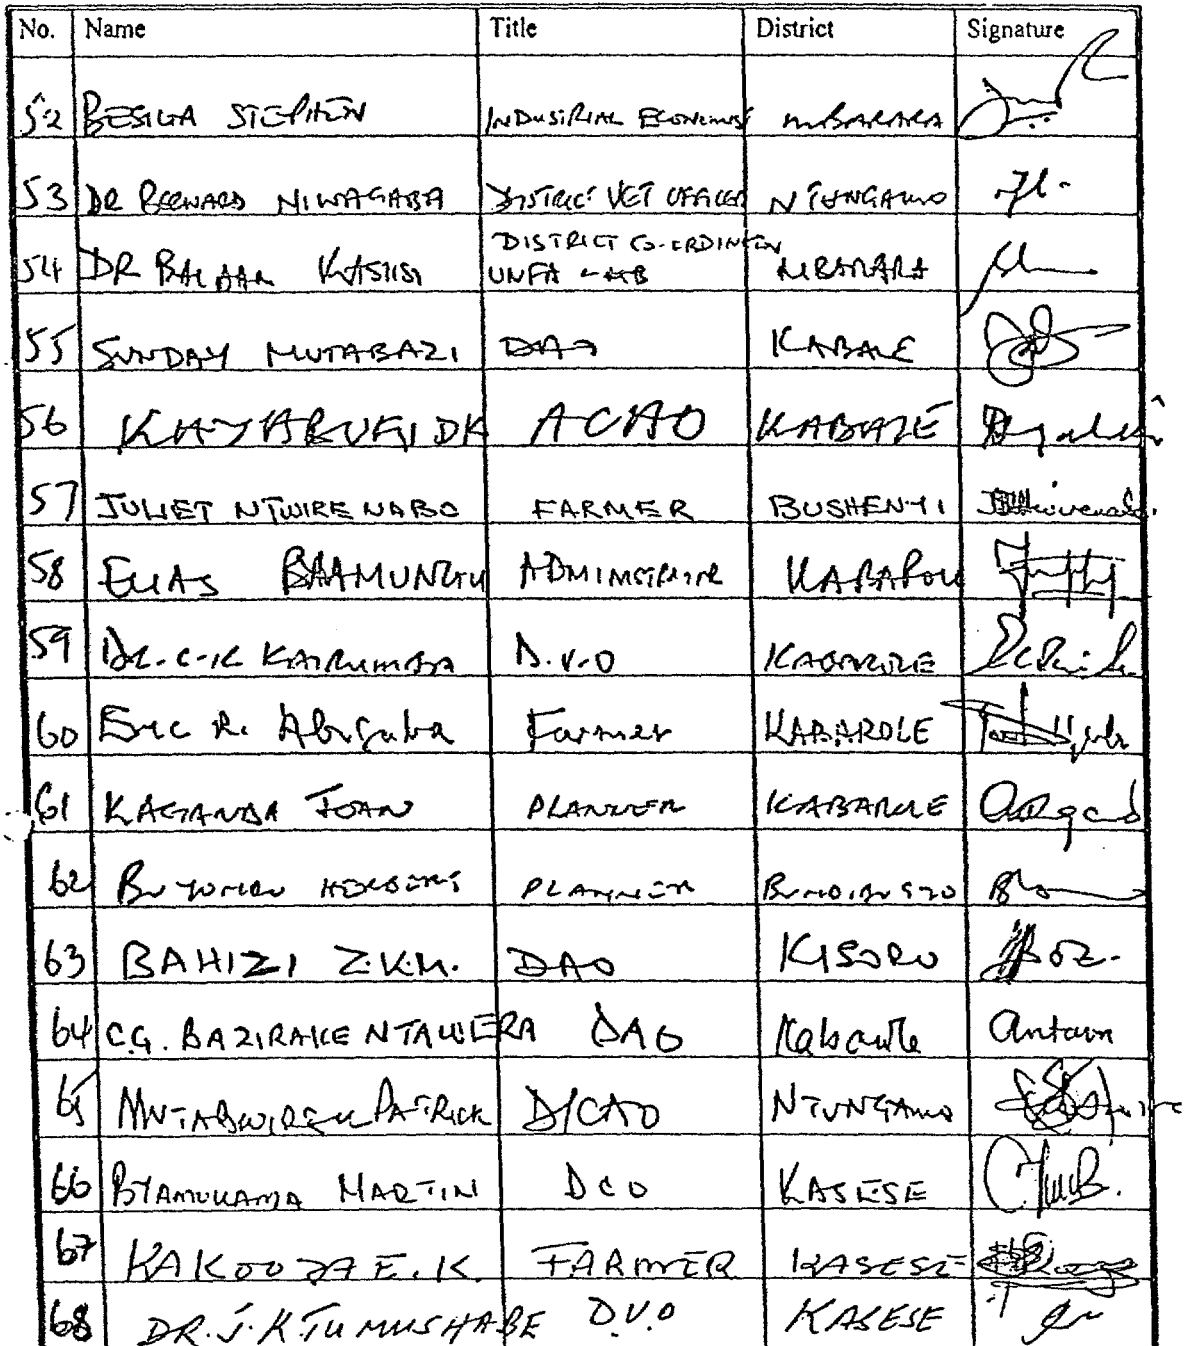 No. Name Title District Signature
52 BESIGA STEPHEN INDUSTRIAL ECONOMIST MBARARA
53 DR BERNARD NIWAGABA DISTRICT VET OFFICER NTUNGAMO
DISTRICT CO-ORDINATOR
54 DR BALAAM KASIISI UNFA - MB MBARARA
55 SUNDAY MUTABAZI DAO KABALE
56 KAYABUKI DK ACAO KABALE
57 JULIET NTWIRENABO FARMER BUSHENYI
58 ELIAS BAAMUNGU KABAROLE
59 DR. C.K KAIRUMBA D.V.O KABAROLE
60 Eric R. Farmer KABAROLE
61 KAGANDA JOAN PLANNER KABAROLE
62 HERBERT PLANNER BUNDIBUGYO
63 BAHIZI Z.K.M. DAO KISORO
64 C.G. BAZIRAKE NTAWERA DAO Kabarole
65 PATRICK D/CAO NTUNGAMO
66 BYAMUKAMA MARTIN DCO KASESE
67 KAKOOZA E. K. FARMER KASESE
68 DR. J. K TUMUSHABE D.V.O KASESE